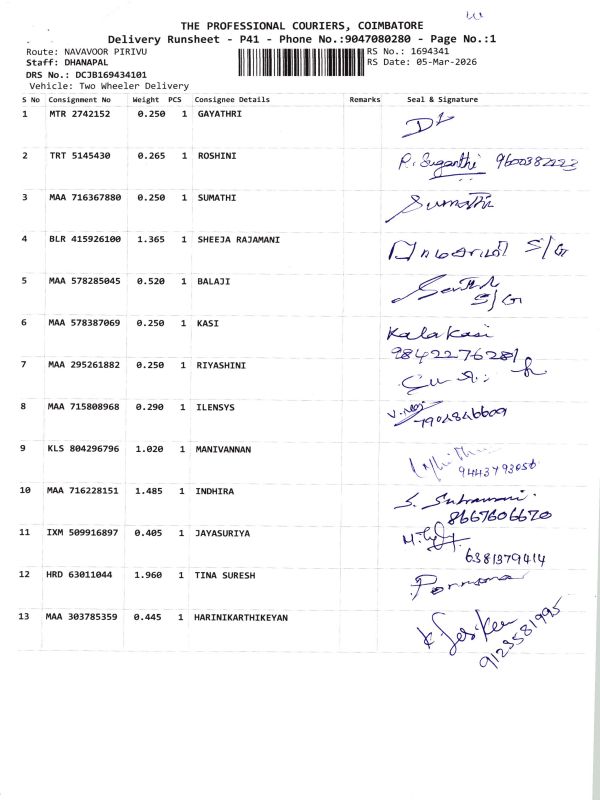 THE PROFESSIONAL COURIERS, COIMBATORE
Delivery Runsheet - P41 - Phone No.:9047080280 - Page No.:1
Route: NAVAVOOR PIRIVU
RS No.: 1694341
Staff: DHANAPAL
RS Date: 05-Mar-2026
DRS No.: DCJB169434101
Vehicle: Two Wheeler Delivery
S No Consignment No Weight PCS Consignee Details Remarks Seal & Signature
1 MTR 2742152 0.250 1 GAYATHRI
2 TRT 5145430 0.265 1 ROSHINI P. Suganthi
3 MAA 716367880 0.250 1 SUMATHI Sumathi
4 BLR 415926100 1.365 1 SHEEJA RAJAMANI S/G
5 MAA 578285045 0.520 1 BALAJI
S/G
6 MAA 578387069 0.250 1 KASI Kala Kasi
9842276281
7 MAA 295261882 0.250 1 RIYASHINI
8 MAA 715808968 0.290 1 ILENSYS
7904846609
9 KLS 804296796 1.020 1 MANIVANNAN
9443793056
10 MAA 716228151 1.485 1 INDHIRA
8667606670
11 IXM 509916897 0.405 1 JAYASURIYA
6381379414
12 HRD 63011044 1.960 1 TINA SURESH
13 MAA 303785359 0.445 1 HARINIKARTHIKEYAN
9123581995